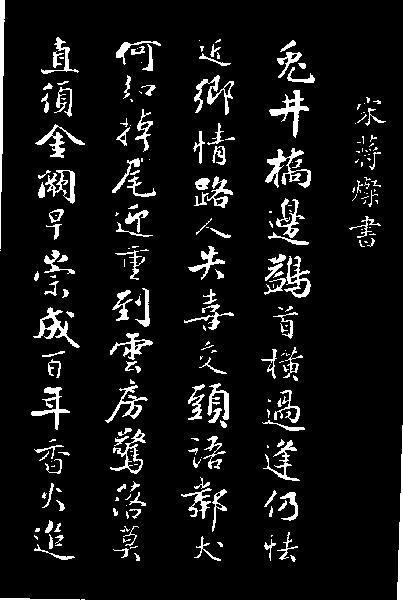 宋蔣燦書
兎井橋邊鷁首橫過逢仍怯
近鄉情路人失喜交頭語鄰犬
何知掉尾迎重到雲房驚落莫
直須金闕早崇成百年香火追